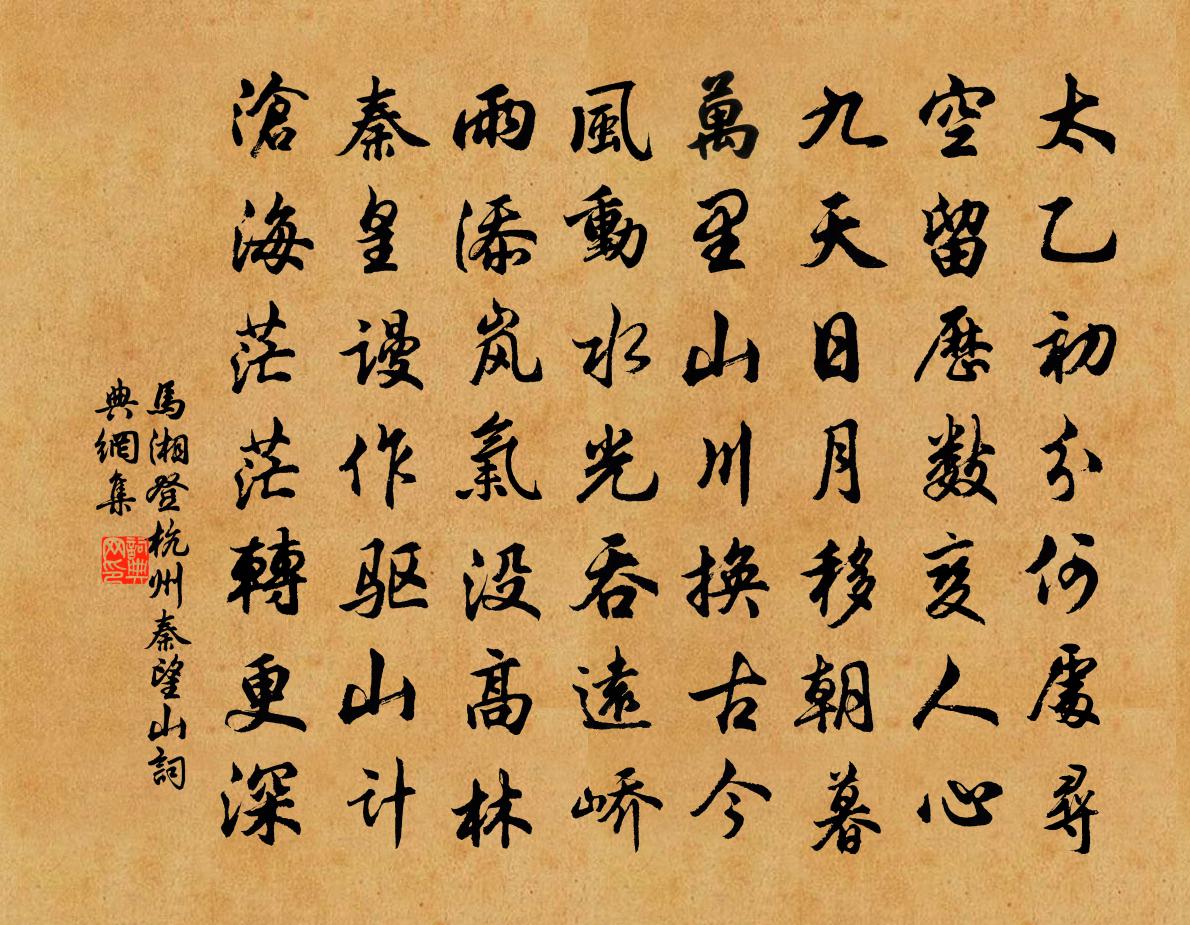 太乙初分何處尋
空留歷數變人心
九天日月移朝暮
萬里山川換古今
風動水光吞遠嶠
雨添岚氣没高林
秦皇謾作驱山计
滄海茫茫轉更深
馬湘登杭州秦望山詞
典網集
詞典
网印